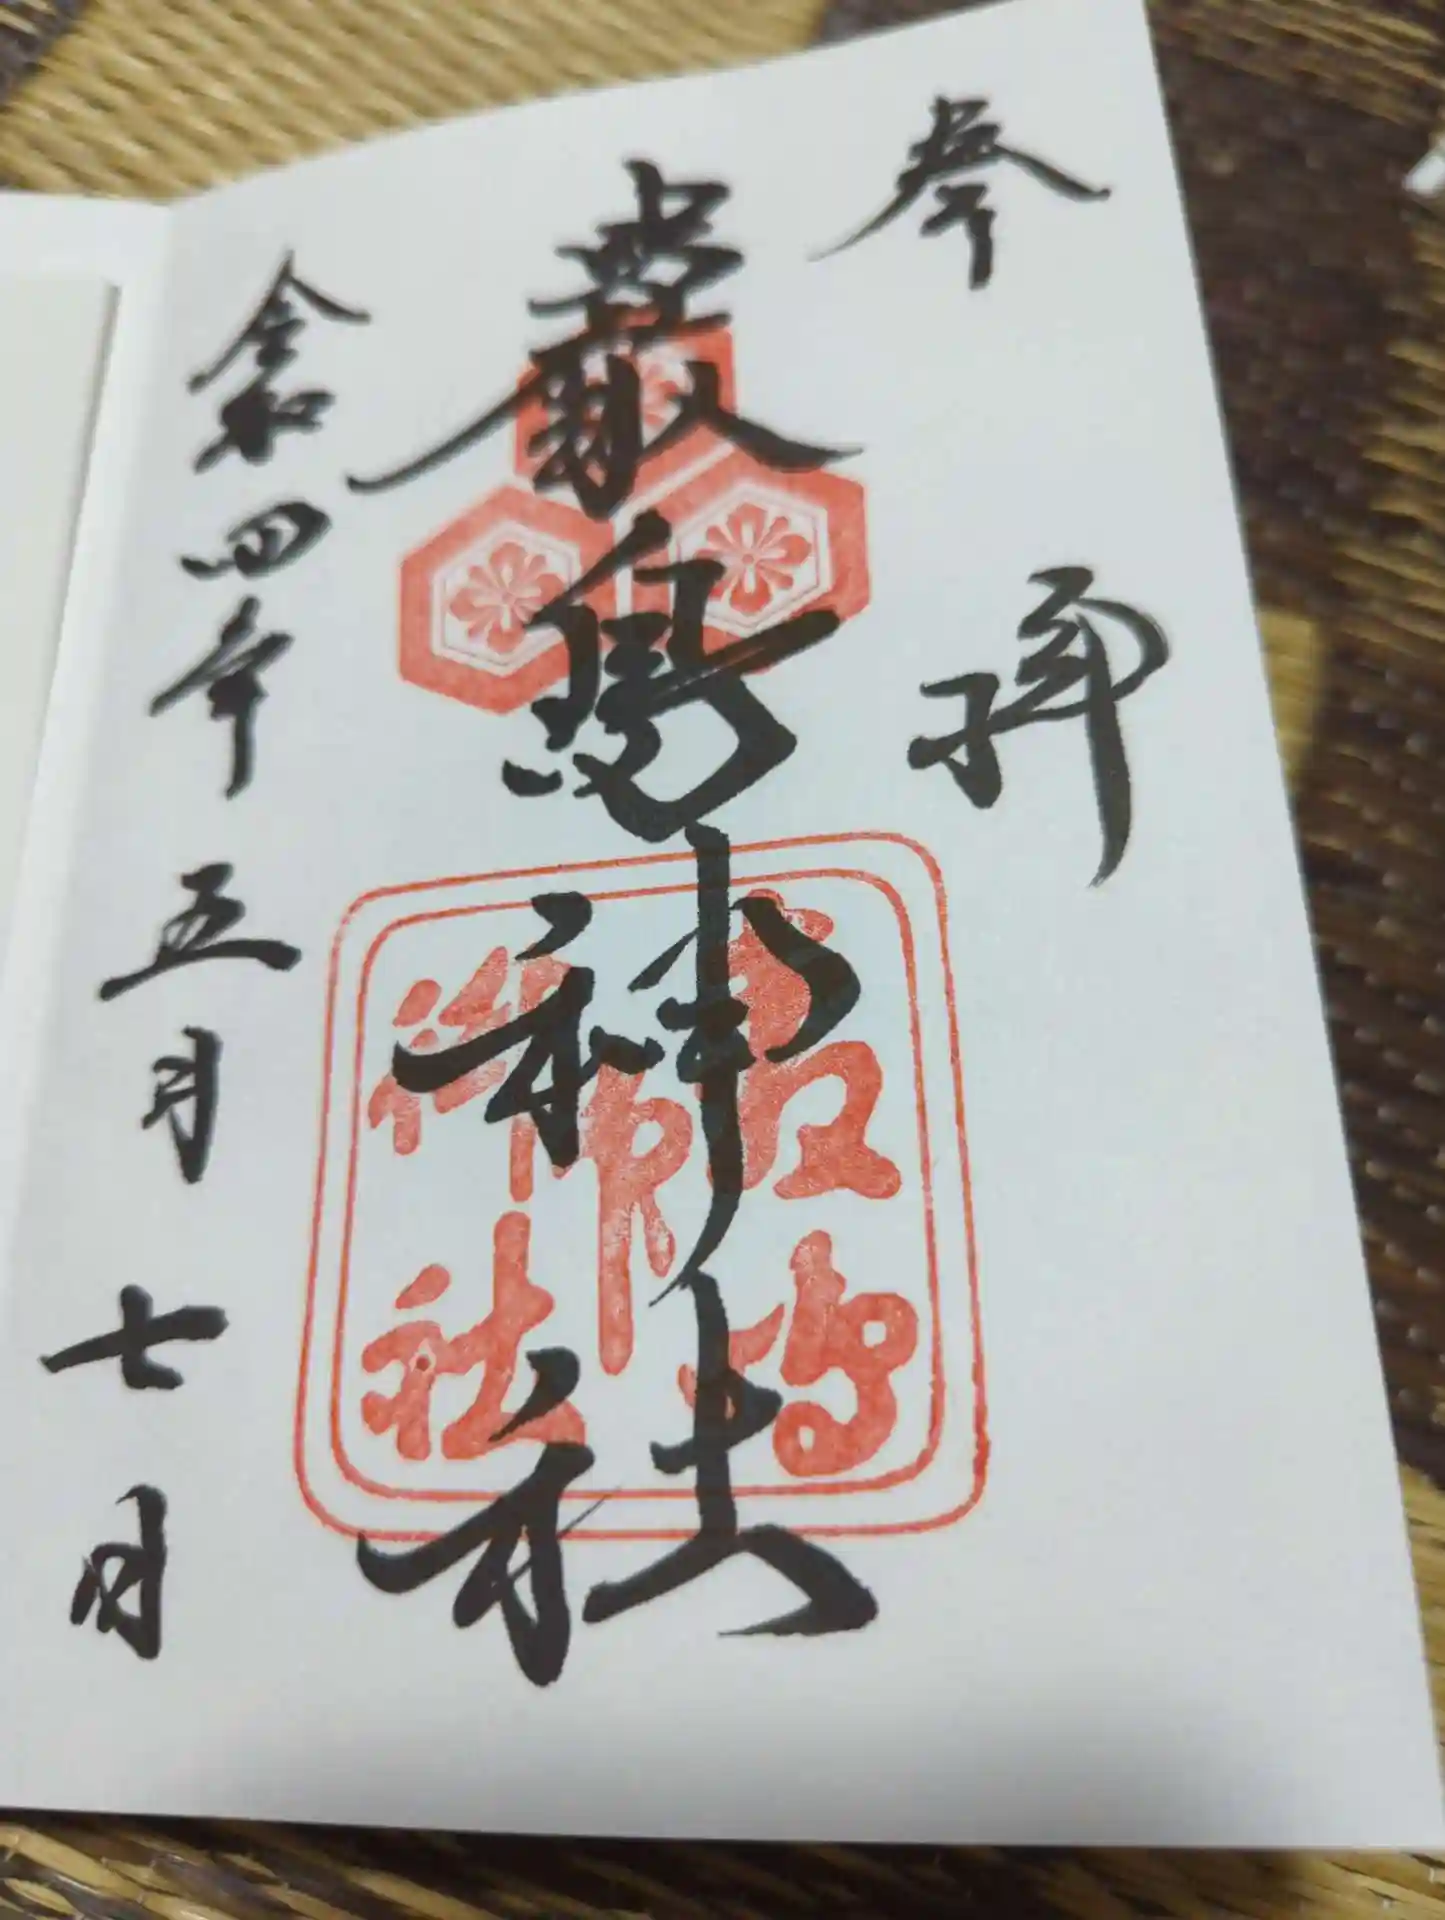 奉
拝
嚴島神社
宮島
神社
令和四年五月七日